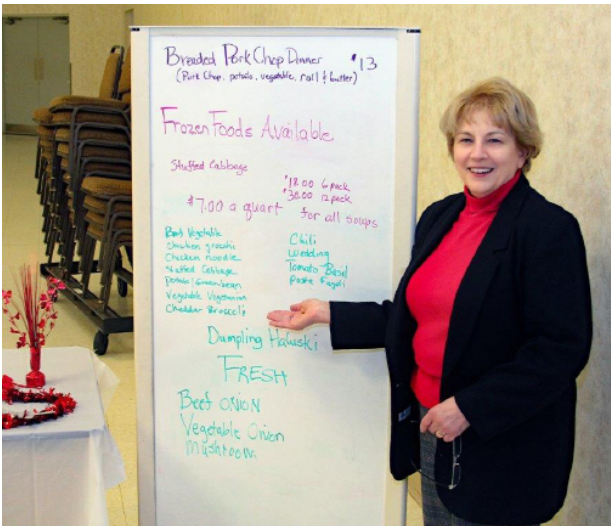 Breaded Pork Chop Dinner $13
(Pork Chop, potato, vegetable, roll & butter)
Frozen Foods Available
Stuffed Cabbage
$18.00 6 pack
$36.00 12 pack
$7.00 a quart for all soups
Beef Vegetable
Chicken gnocchi
Chicken noodle
Stuffed Cabbage
Potato/Greenbean
Vegetable Vegetarian
Cheddar Broccoli
Chili
Wedding
Tomato Basil
Pasta Fagoli
Dumpling Haluski
FRESH
Beef ONION
Vegetable Onion
Mushroom